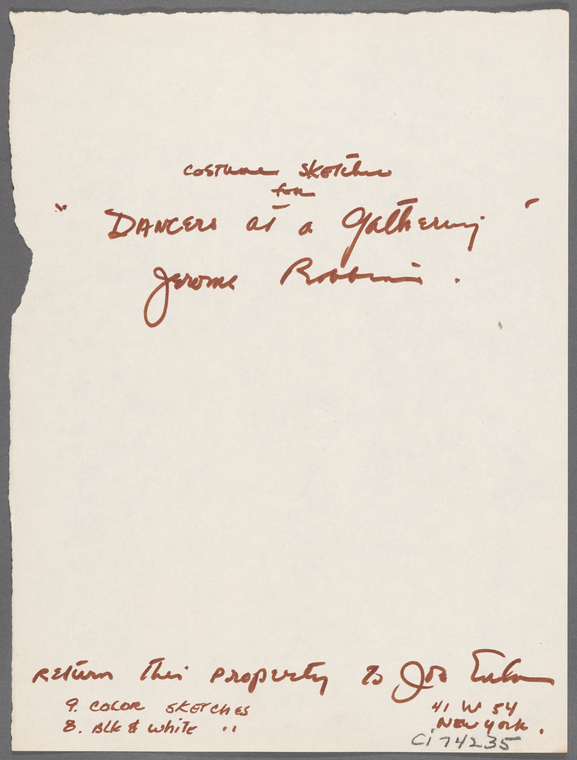 costume sketches
for
"Dancers at a Gathering"
Jerome Robbins.
Return this property to Joe Eula
9. color sketches
8. Blk & white "
41 W 54
New York.
CI 74235